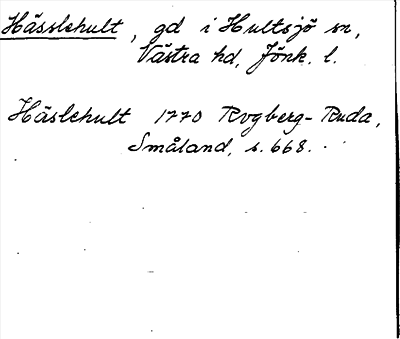 Hässlehult, gd i Hultsjö sn,
Västra hd, Jönk. l.
Häslehult 1770 Rogberg-Ruda,
Småland, s. 668.